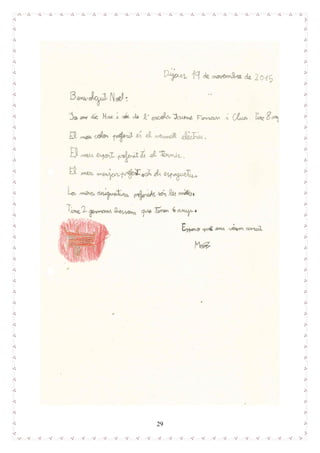 Dijous 19 de novembre de 2015
Benvolgut Noel:
Jo em dic i de l'escola Jaume i Clua. Tinc 8
El meu color preferit és el vermell elèctric.
El meu esport preferit és el tennis.
El meu menjar preferit són els espaguetis.
La meva asignatura preferida són les mates.
Tinc 2 germanes bessones que tenen 6 anys.
Espero que ens aviat
29